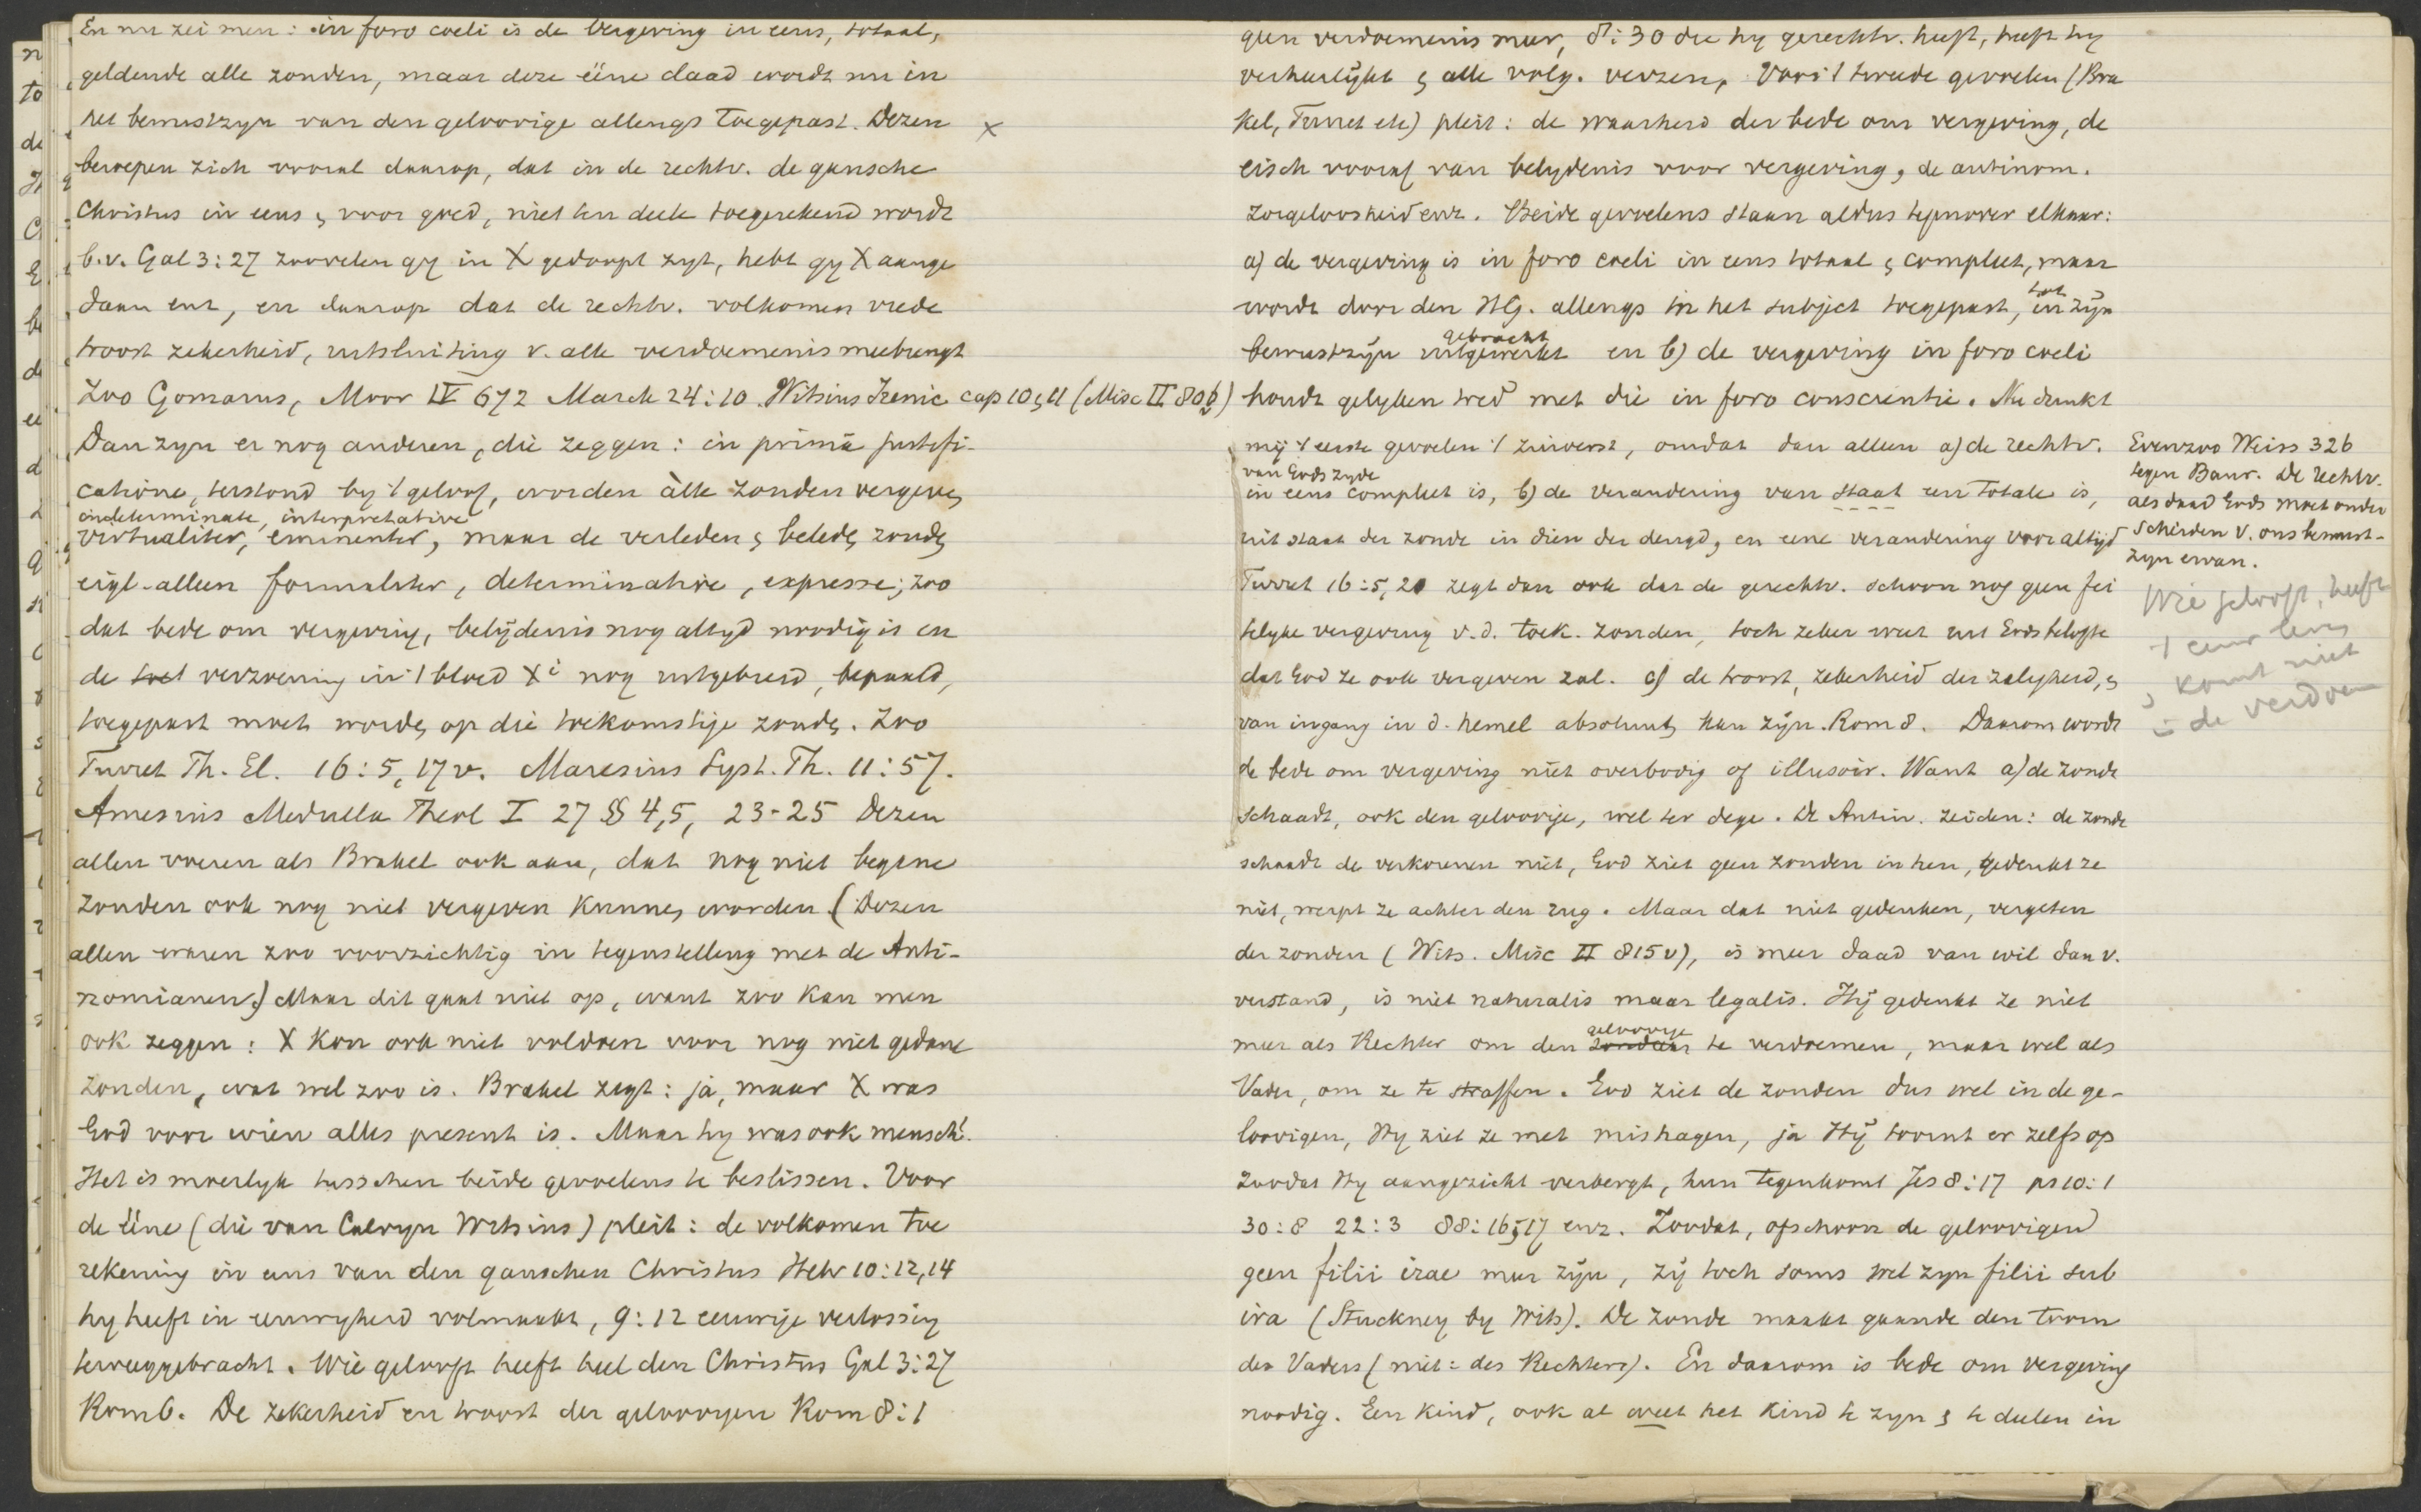 En nu zei men: in foro coeli is de vergeving in eens, totaal,
geldende alle zonden, maar deze ééne daad wordt nu in
het bewustzyn van den geloovige allengs toegepast. Dezen ×
beroepen zich vooral daarop, dat in de rechtv. de gansche
Christus in eens & voor goed, niet ten deele toegerekend wordt
b.v. Gal 3:27 zoovelen gy in X gedoopt zyt, hebt gy X aange
daan enz, en daarop dat de rechtv. volkomen vrede
troost zekerheid, uitsluiting v. alle verdoemenis meebrengt
Zoo Gomarus, Moor IV 672 Marck 24:10 Witsius Irenic cap 10 & 11 (Misc II 806)
Dan zyn er nog anderen, die zeggen: in prima justifi-
catione, terstond by 't geloof, worden àlle zonden vergeven
indeterminate, interpretative
virtualiter, eminenter, maar de verleden & beleden zonden
eigl. alleen formaliter, determinative, expresse; zoo
dat bede om vergeving, belijdenis nog altyd noodig is en
de verzoening in 't bloed Xi nog uitgebreid, bepaald,
toegepast moet worden op die toekomstige zonden. Zoo
Turret Th. El. 16:5, 17v. Maresius Syst. Th. 11:57.
Amesius Medulla Theol I 27 §§ 4,5, 23-25 Dezen
allen voeren als Brakel ook aan, dat nog niet begane
zonden ook nog niet vergeven kunnen worden (Dezen
allen waren zoo voorzichtig in tegenstelling met de Anti-
nomianen.) Maar dit gaat niet op, want zoo kan men
ook zeggen: X kon ook niet voldoen voor nog niet gedane
zonden, wat wel zoo is. Brakel zegt: ja, maar X was
God voor wien alles present is. Maar hy was ook mensch!
Het is moeilyk tusschen beide gevoelens te beslissen. Voor
de ééne (die van Calvyn Witsius) pleit: de volkomen toe
rekening in eens van den ganschen Christus Hebr 10:12,14
hy heeft in eeuwigheid volmaakt, 9:12 eeuwige verlossing
teweeggebracht. Wie gelooft heeft heel den Christus Gal 3:27
Rom 6. De zekerheid en troost der geloovigen Rom 8:1
geen verdoemenis meer, 8:30 die hy gerechtv. heeft, heeft hy
verheerlijkt & alle volg. verzen. Voor 't tweede gevoelen (Bra
kel, Turret etc) pleit: de waarheid der bede om vergeving, de
eisch vooraf van belydenis voor vergeving, de antinom.
zorgeloosheid enz. Beide gevoelens staan aldus tegenover elkaar:
a) de vergeving is in foro coeli in eens totaal & compleet, maar
wordt door den HG. allengs in het subject toegepast, in zijn
tot
bewustzijn uitgewerkt en b) de vergeving in foro coeli
gebracht
houdt gelyken tred met die in foro conscientie. Nu dunkt
mij 't eerste gevoelen 't zuiverst, omdat dan alleen a) de rechtv.
van Gods zyde
in eens compleet is, b) de verandering van staat een totale is,
uit staat der zonde in dien der deugd, en eene verandering voor altijd
Turret 16:5, 20 zegt dan ook dat de gerechtv. schoon nog geen fei
telyke vergeving v.d. toek. zonden, toch zeker weet uit Gods belofte
dat God ze ook vergeven zal. c) de troost, zekerheid der zaligheid, &
van ingang in d. hemel absoluut kan zijn. Rom 8. Daarom wordt
de bede om vergeving niet overbodig of illusoir. Want a) de zonde
schaadt, ook den geloovige, wel ter dege. De Antin. zeiden: de zonde
schaadt de verkorenen niet, God ziet geen zonden in hen, gedenkt ze
niet, werpt ze achter den rug. Maar dat niet gedenken, vergeten
der zonden (Wits. Misc II 815v), is meer daad van wil dan v.
verstand, is niet naturalis maar legalis. Hij gedenkt ze niet
meer als Rechter om den zondaar te verdoemen, maar wel als
geloovige
Vader, om ze te straffen. God ziet de zonden dus wel in de ge-
loovigen, Hy ziet ze met mishagen, ja Hij toornt er zelfs op
zoodat Hy aangezicht verbergt, hun tegenkomt Jes 8:17 ps 10:1
30:8 22:3 88:16,17 enz. Zoodat, ofschoon de geloovigen
geen filii irae meer zijn, zij toch soms wel zyn filii sub
ira (Stuckney by Wits). De zonde maakt gaande den toorn
des Vaders (niet: des Rechters). En daarom is bede om vergeving
noodig. Een kind, ook al weet het kind te zyn & te deelen in
Evenzoo Weiss 326
tegen Baur. De rechtv.
als daad Gods moet onder
scheiden v. ons bewust-
zyn ervan.
Wie gelooft, heeft
't eeuw leven
& komt niet
in de verdoem